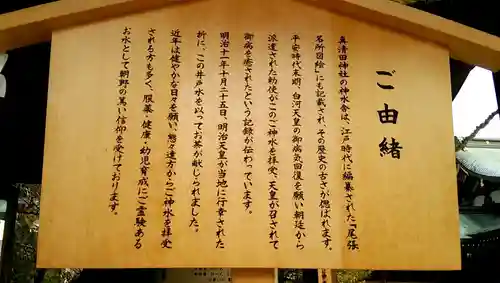 ご由緒
真清田神社の神水舎は、江戸時代に編纂された『尾張
名所図絵』にも記載され、その歴史の古さが偲ばれます。
平安時代末期、白河天皇の御病気回復を願い朝廷から
派遣された勅使がこのご神水を拝受、天皇が召されて
御病を癒されたという記録が伝わっています。
明治十一年十月二十五日、明治天皇が当地に行幸された
折に、この井戸水を以ってお茶が献じられました。
近年は健やかな日々を願い、態々遠方からご神水を拝受
される方も多く、服薬・健康・幼児育成にご霊験ある
お水として朝野の篤い信仰を受けております。